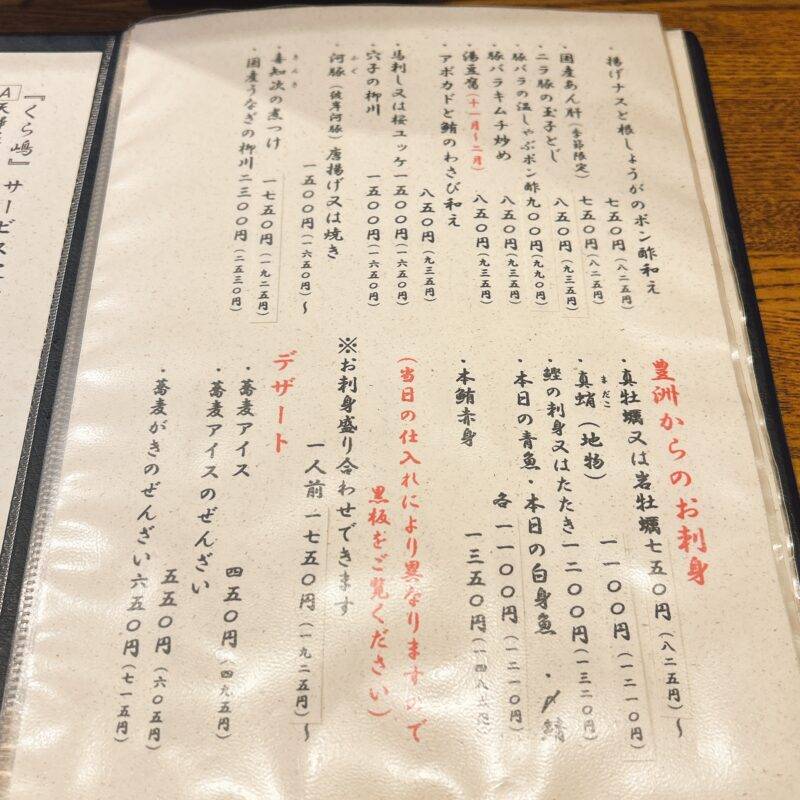 ・揚げナスと根しょうがのポン酢和え
七五〇円(八二五円)
・国産あん肝(季節限定)
七五〇円(八二五円)
・ニラ豚の玉子とじ
八五〇円(九三五円)
・豚バラの温しゃぶポン酢九〇〇円(九九〇円)
・豚バラキムチ炒め
八五〇円(九三五円)
・湯豆腐(十一月〜二月)
八五〇円(九三五円)
・アボカドと鮪のわさび和え
八五〇円(九三五円)
・馬刺し又は桜ユッケ一五〇〇円(一六五〇円)
・穴子の柳川
一五〇〇円(一六五〇円)
・河豚(彼岸河豚)唐揚げ又は焼き
ふぐ
一五〇〇円(一六五〇円)〜
・喜知次の煮つけ
きんき
一七五〇円(一九二五円)
・国産うなぎの柳川二三〇〇円(二五三〇円)
豊洲からのお刺身
・真牡蠣又は岩牡蠣七五〇円(八二五円)〜
・真蛸(地物)
まだこ
一一〇〇円(一二一〇円)
・鰹の刺身又はたたき一二〇〇円(一三二〇円)
・本日の青魚・本日の白身魚・〆鯖
各一一〇〇円(一二一〇円)
・本鮪赤身
一三五〇円(一四八五円)
(当日の仕入れにより異なりますので
黒板をご覧ください)
※お刺身盛り合わせできます
一人前一七五〇円(一九二五円)〜
デザート
・蕎麦アイス
四五〇円(四九五円)
・蕎麦アイスのぜんざい
五五〇円(六〇五円)
・蕎麦がきのぜんざい六五〇円(七一五円)
『くら嶋』サービス
A